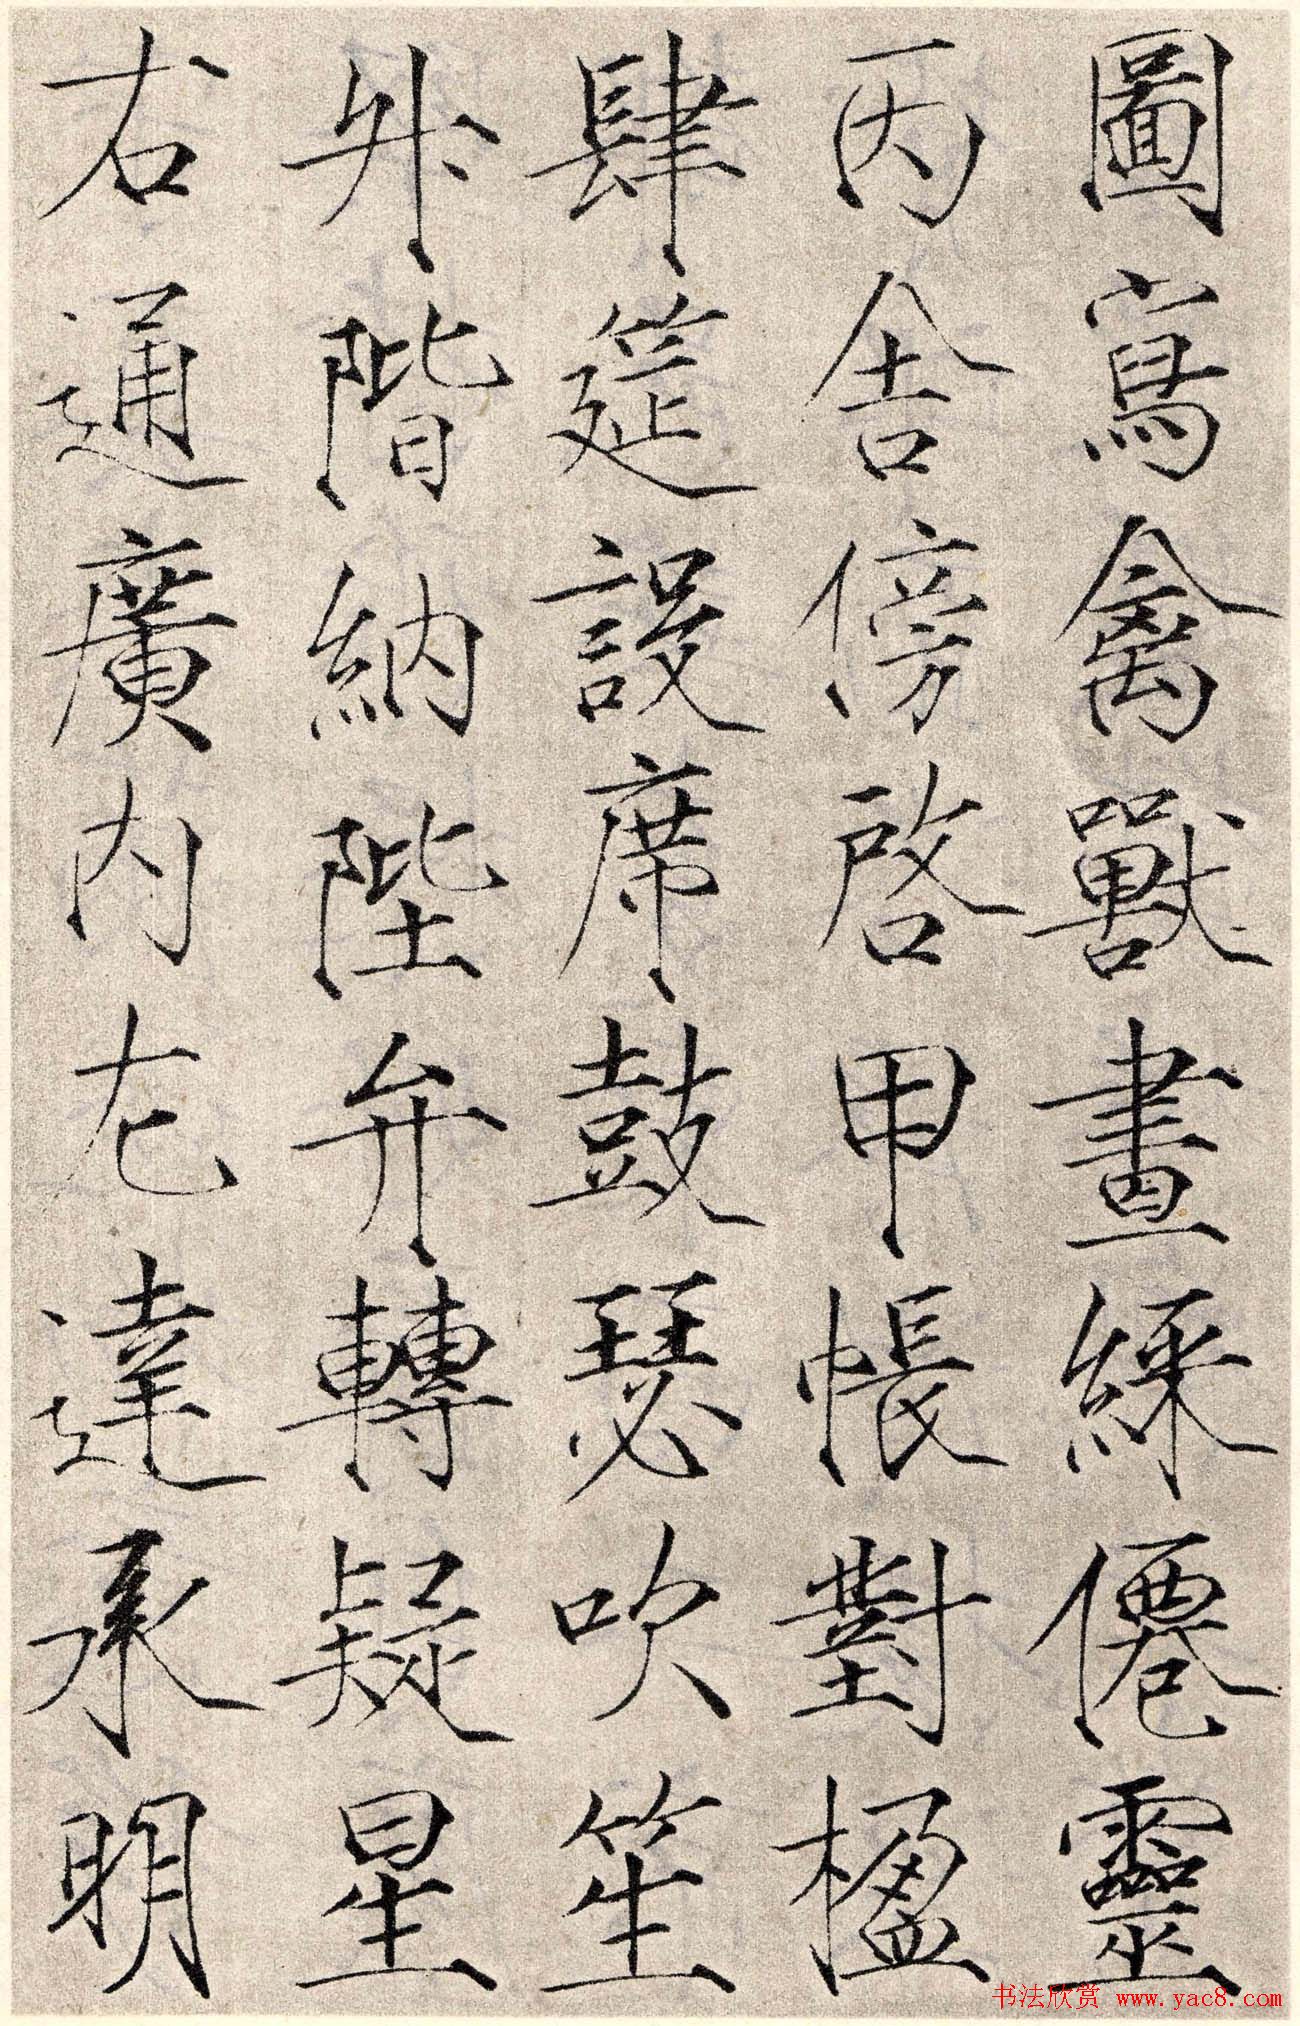 圖寫禽獸畫綵僊靈
丙舍傍啓甲帳對楹
肆筵設席鼓瑟吹笙
升階納陛弁轉疑星
右通廣内左達承明
书法欣赏 www.yac8.com